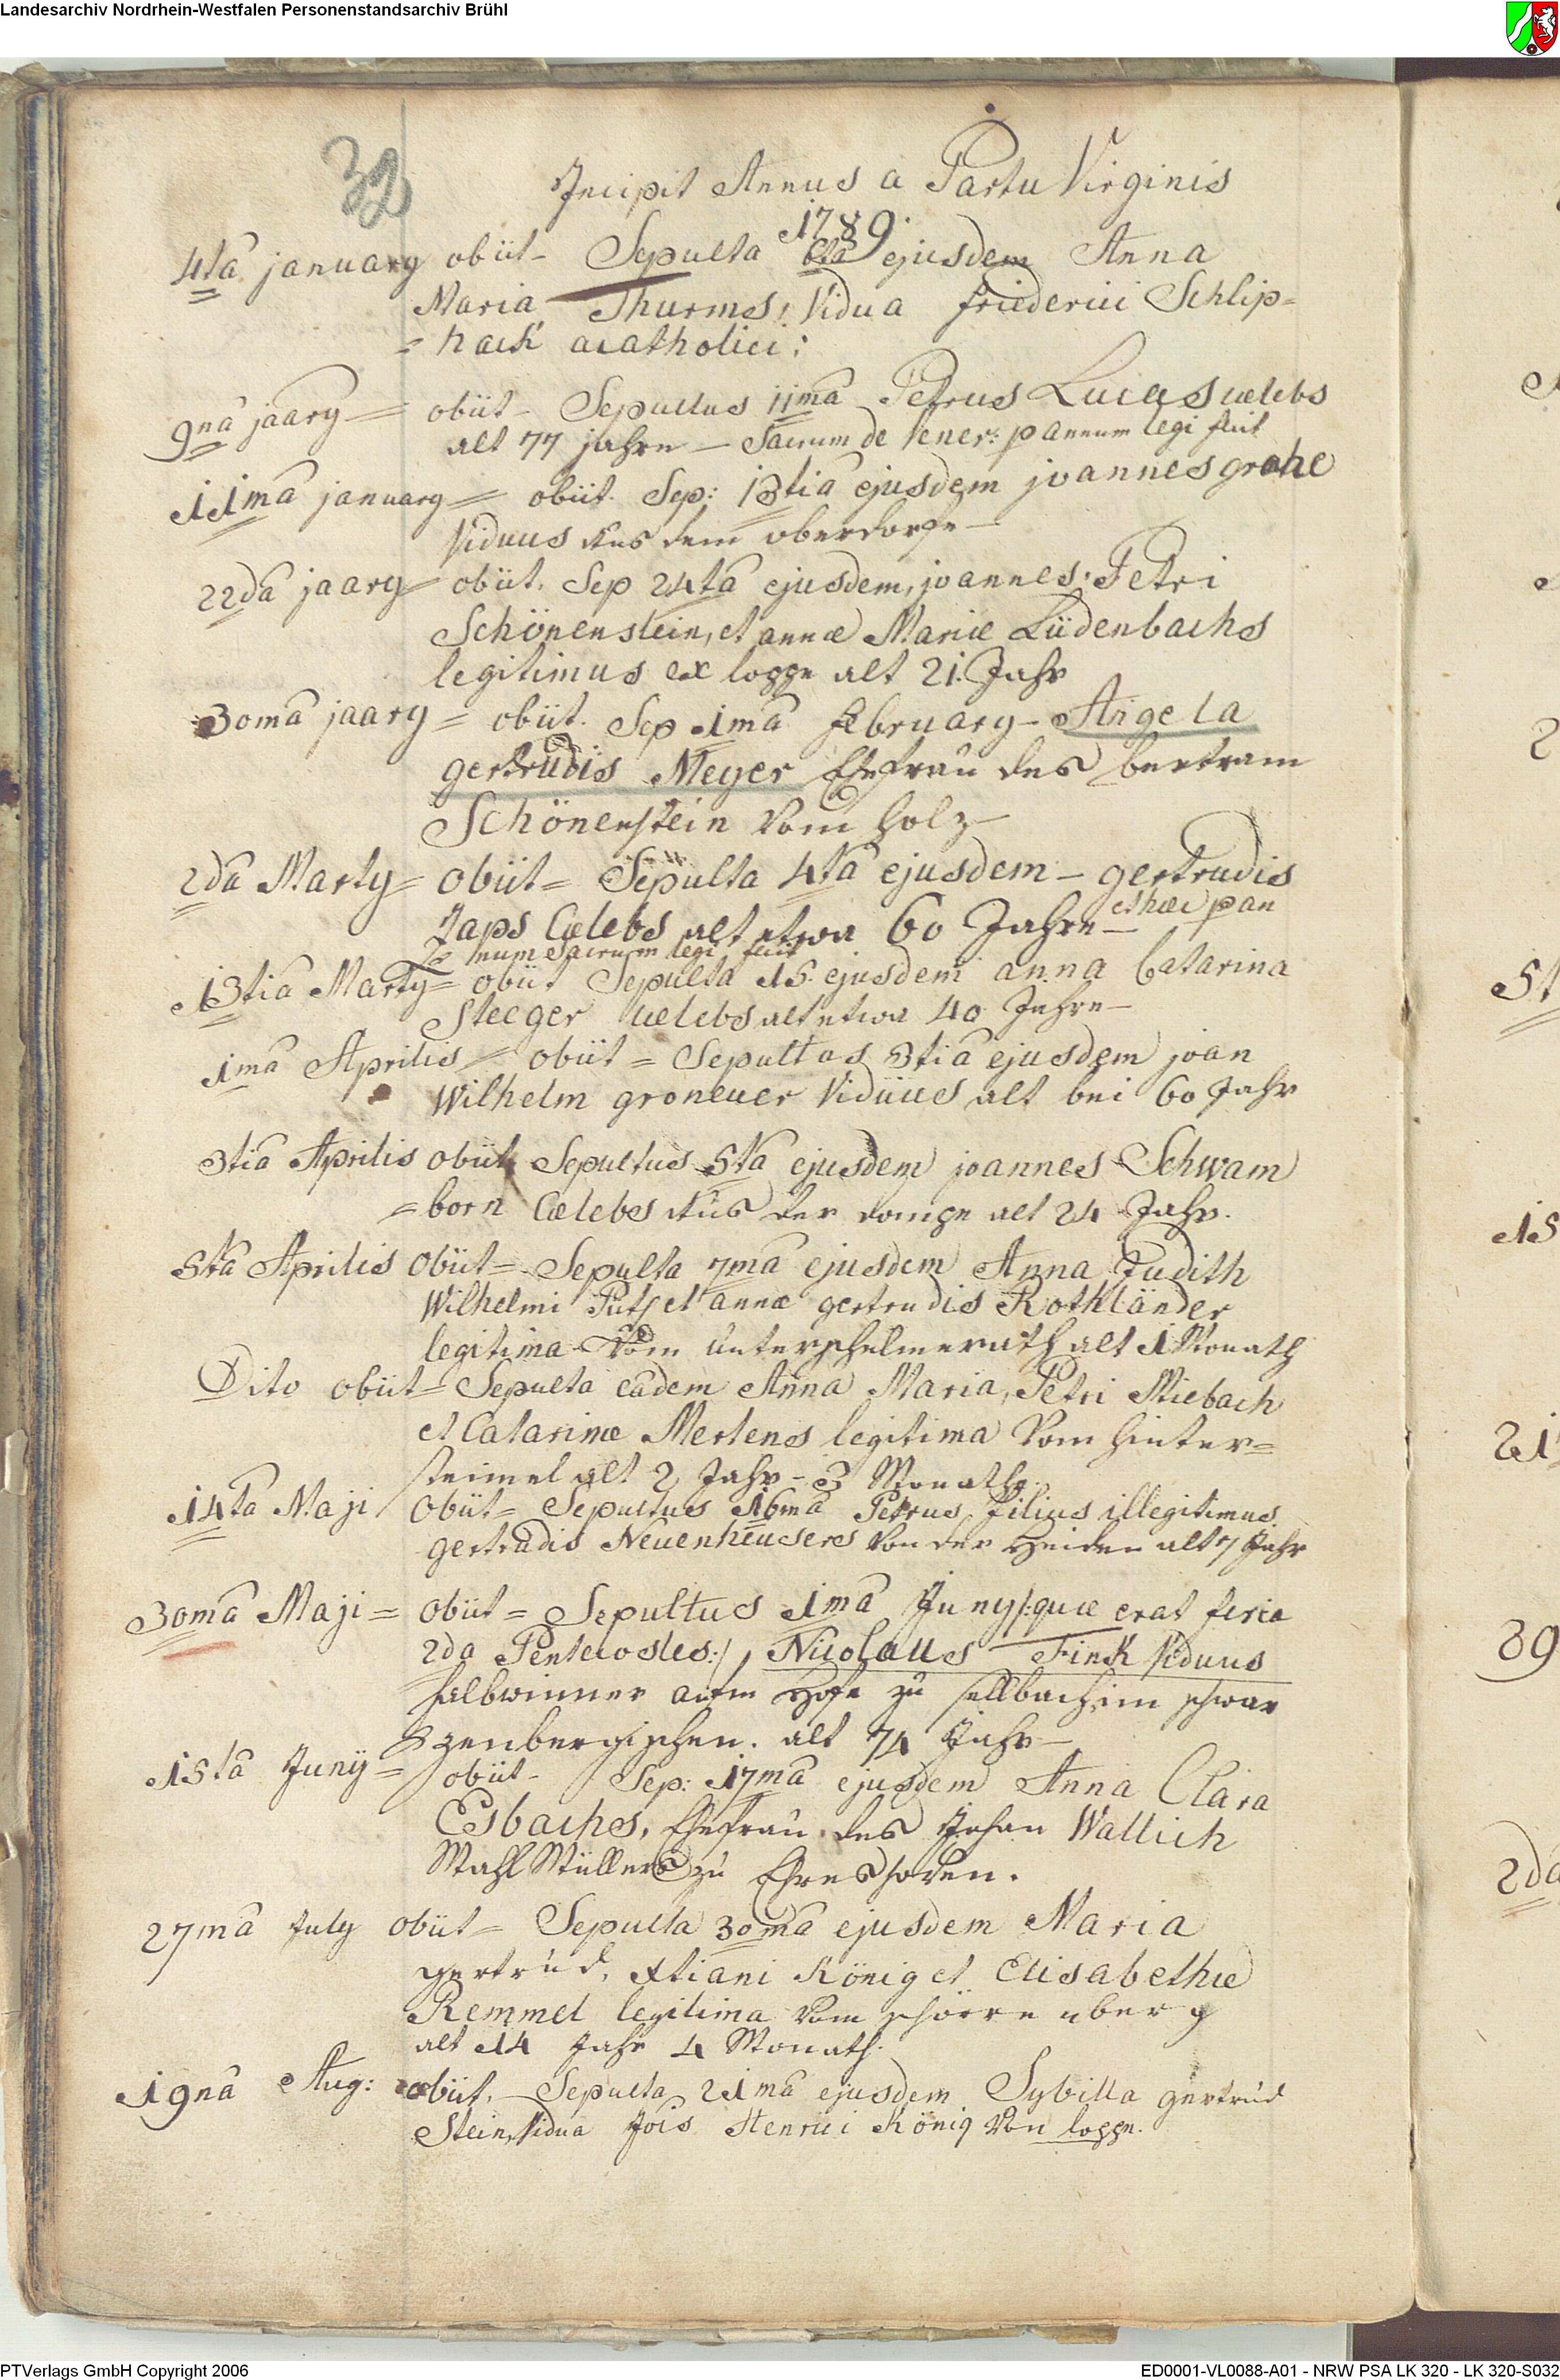 Landesarchiv Nordrhein-Westfalen Personenstandsarchiv Brühl
32
Incipit Annus a Partu Virginis
1789.
4ta january obiit - Sepulta 6ta ejusdem Anna
Maria Thurms, Vidua friederici Schlip=
= hack acatholici:
9na jaary = obiit - Sepultus 11ma Petrus Lucas cælebs
alt 77 jahre - Sacrum de Vener: pannum legi fecit
11ma january = obiit. Sep: 13tia ejusdem joannes grohe
Viduus aus dem oberdorfe -
22da jaary = obiit. Sep 24ta ejusdem, joannes, Petri
Schönenstein, et annæ Mariæ Lüdenbachs
legitimus ex loppe alt 21. Jahr
30ma jaary = obiit. Sep 1ma february - Angela
gertrudis Meyer Ehefrau des bertram
Schönenstein vom holz -
2da Marty = obiit = Sepulta 4ta ejusdem - gertrudis
Zaps Cælebs alt etwa 60 Jahre - et hæc pan
num Sacrum legi fecit
13tia Marty = obiit Sepulta 15. ejusdem anna Catarina
Steeger cælebs alt etwa 40 Jahre -
1ma Aprilis = obiit = Sepultus 3tia ejusdem joan
Wilhelm groneuer Viduus alt bei 60 Jahr
3tia Aprilis obiit Sepultus 5ta ejusdem joannes Schwam
= born Cælebs aus der alt 24 Jahr.
5ta Aprilis obiit = Sepulta 7ma ejusdem Anna Judith
Wilhelmi Pütz et annæ gertrudis Rothländer
legitima vom unterschelmerath alt 1 Monath
Dito obiit = Sepulta eadem Anna Maria, Petri Miebach
et Catarinæ Mertens legitima Vom hinter=
steimel alt 2 Jahr - 3 Monathe.
14ta Maji obiit = Sepultus 16ma Petrus filius illegitimus
gertrudis Neuenheusers von der Heiden alt 7 Jahr
30ma Maji = obiit = Sepultus 1ma Juny /:quæ erat feria
2da Pentecostes:/, Nicolaus Fink Viduus
halbwinner aufm Hofe zu sellbach im schwar
zenbergischen. alt 74 Jahr -
15ta Juny = obiit - Sep: 17ma ejusdem Anna Clara
Esbachs, Ehefrau des Johan Wallich
Mahl Müllers zu Ehreshoven.
27ma July obiit = Sepulta 30ma ejusdem Maria
gertrud, Xtiani König et Elisabethæ
Remmel legitima vom
alt 14 Jahr 4 Monath.
19na Aug: obiit. - Sepulta 21ma ejusdem Sybilla gertrud
Stein, Vidua Jois Henrici König Von loppe.
PTVerlags GmbH Copyright 2006
ED0001-VL0088-A01 - NRW PSA LK 320 - LK 320-S032